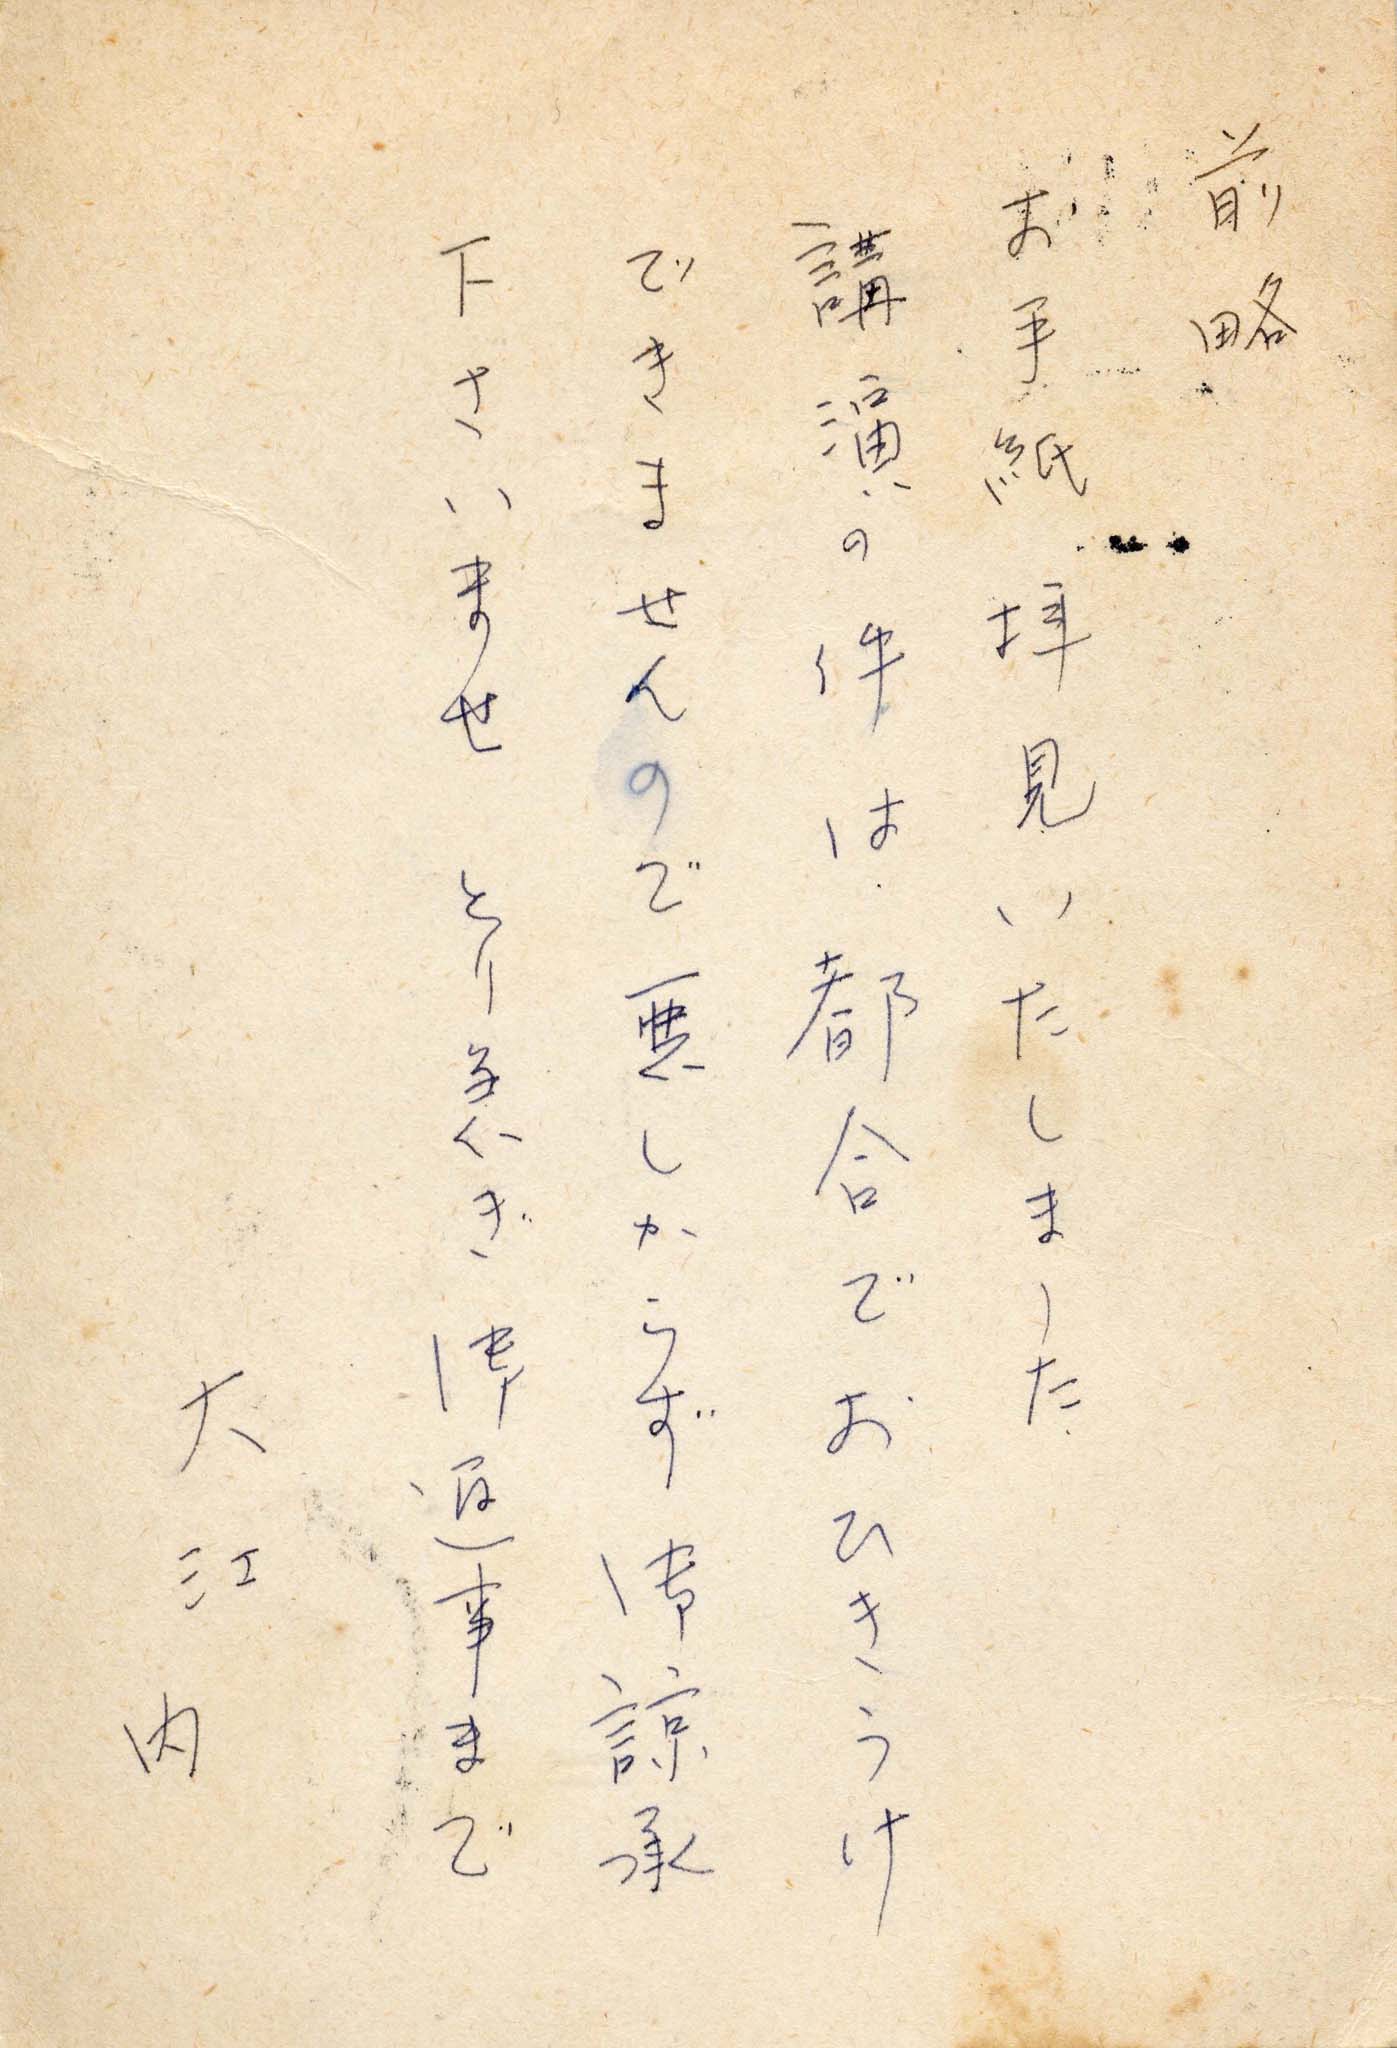 前略
お手紙拝見いたしました
講演の件は都合でおひきうけ
できませんので悪しからず御諒承
下さいませ とり急ぎ御返事まで
大江
内